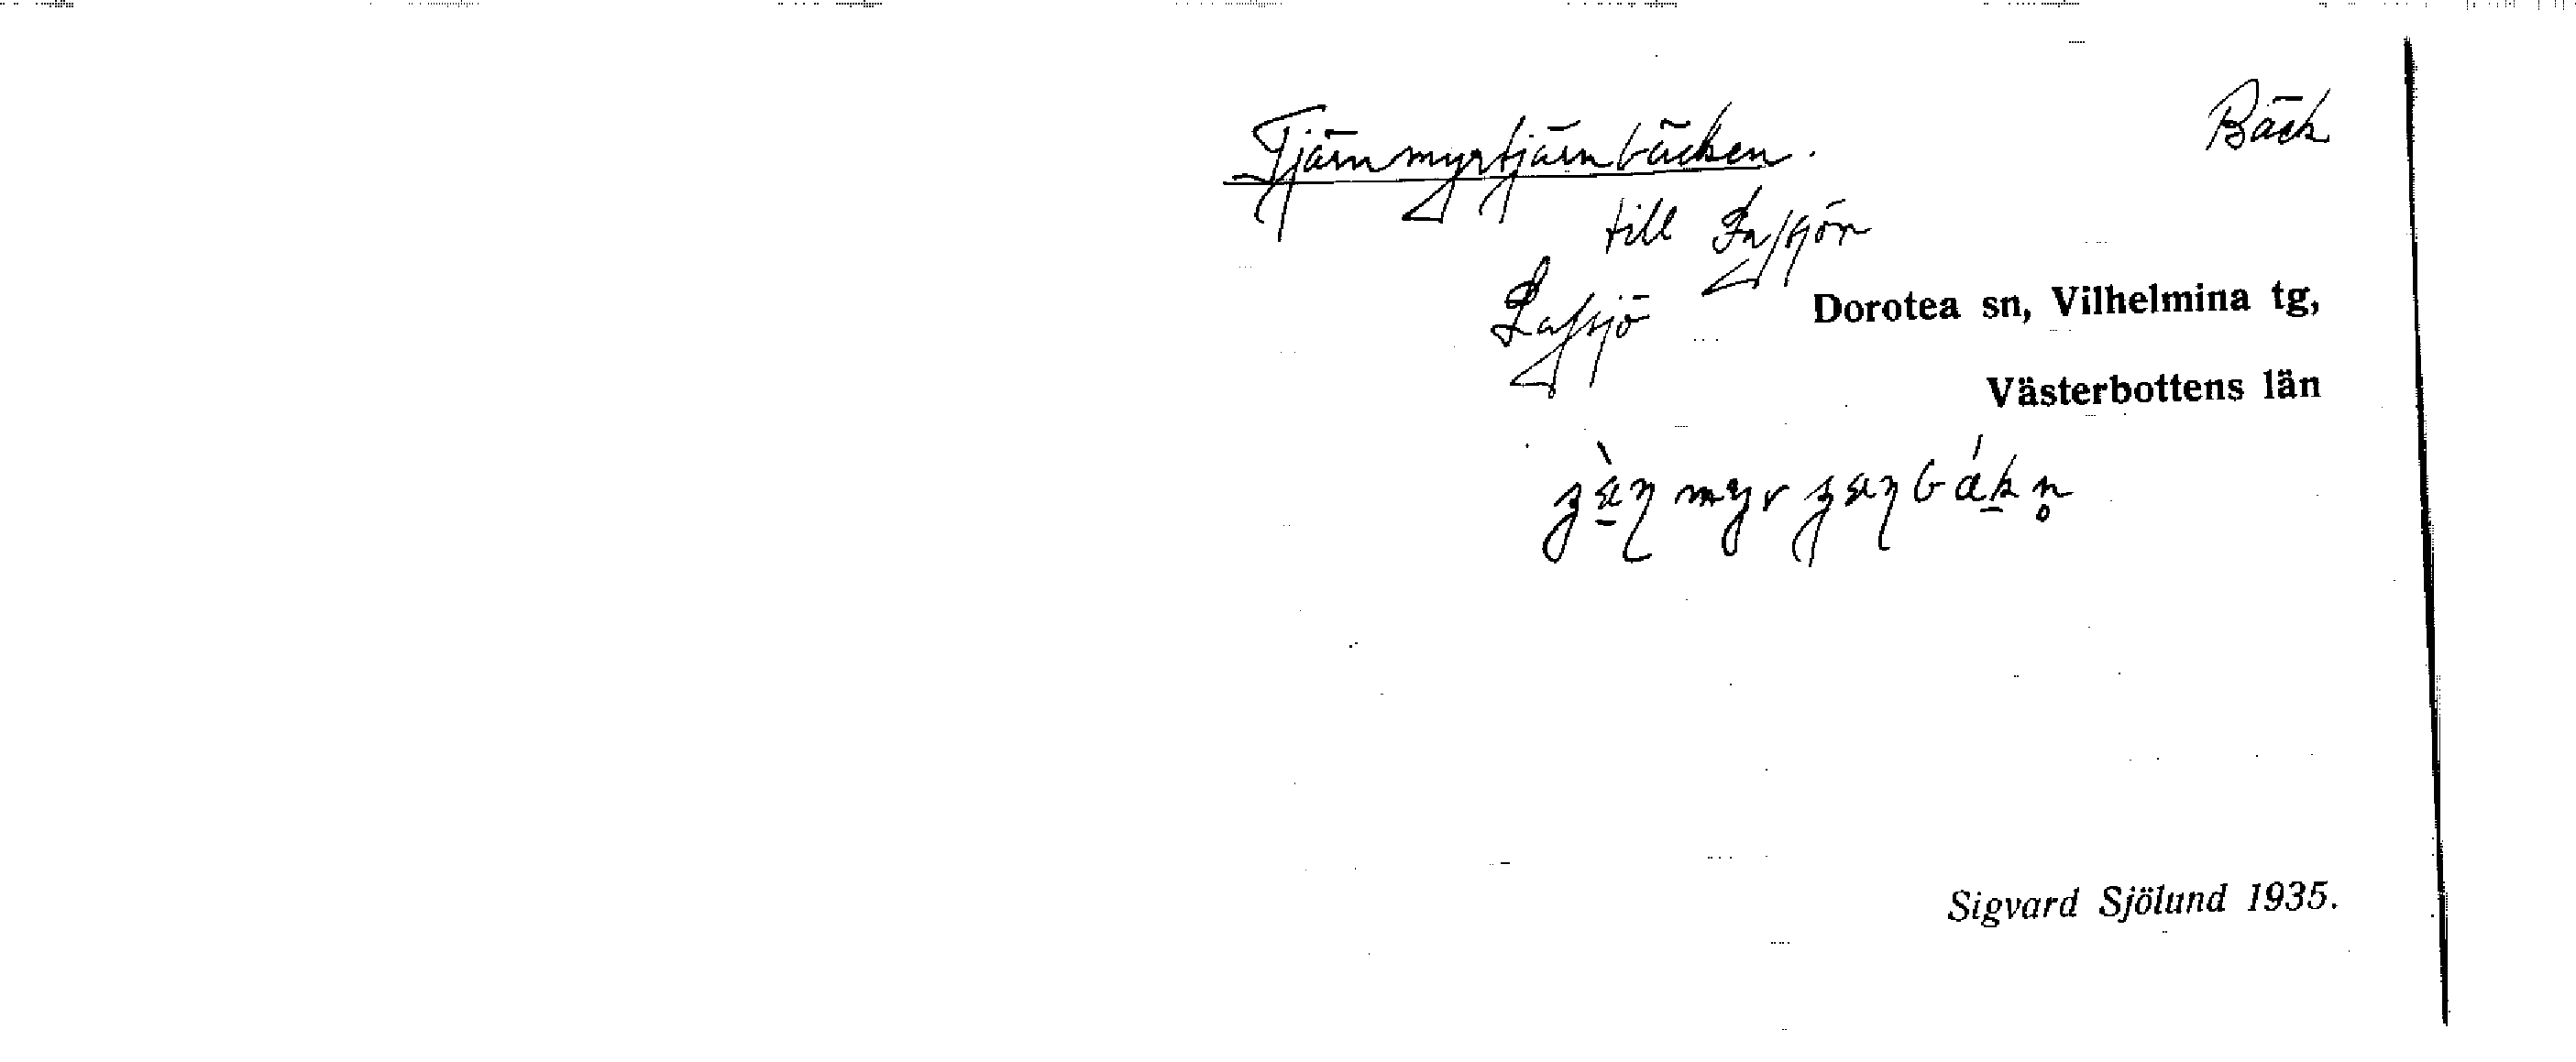 Tjärnmyrtjärnbäcken.
Bäck
till
Lafsjö
Dorotea sn, Vilhelmina tg,
Västerbottens län
Sigvard Sjölund 1935.